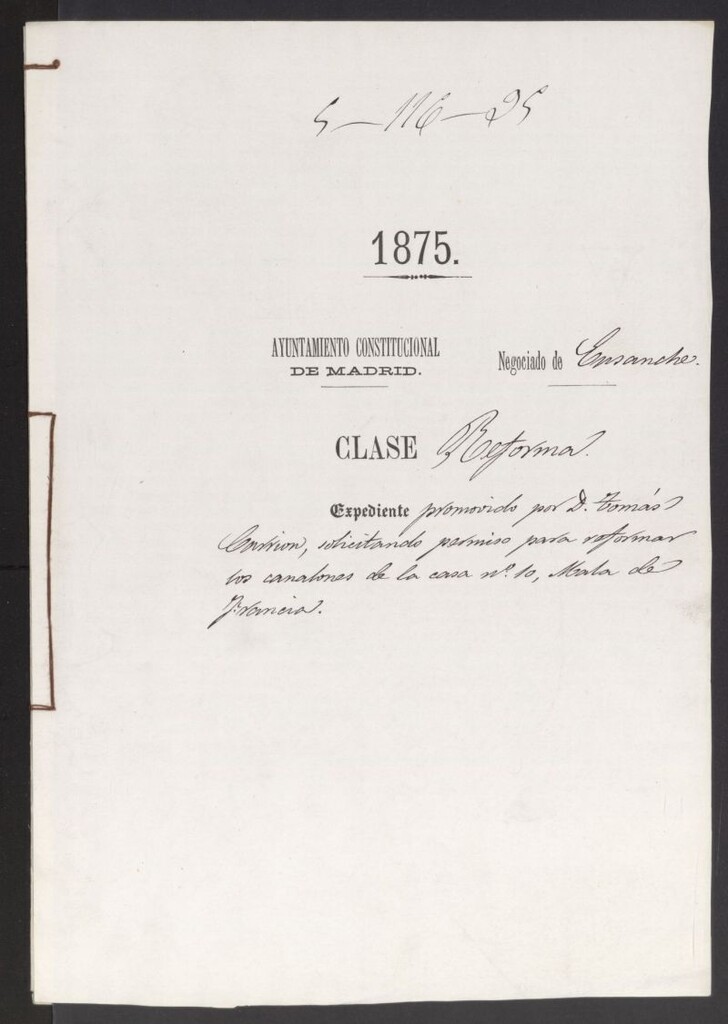 5-116-25
1875.
AYUNTAMIENTO CONSTITUCIONAL
DE MADRID.
Negociado de Ensanche.
CLASE Reforma.
Expediente promovido por D. Tomás
Carrion, solicitando permiso para reformar
los canalones de la casa nº. 10, Mala de
Francia.